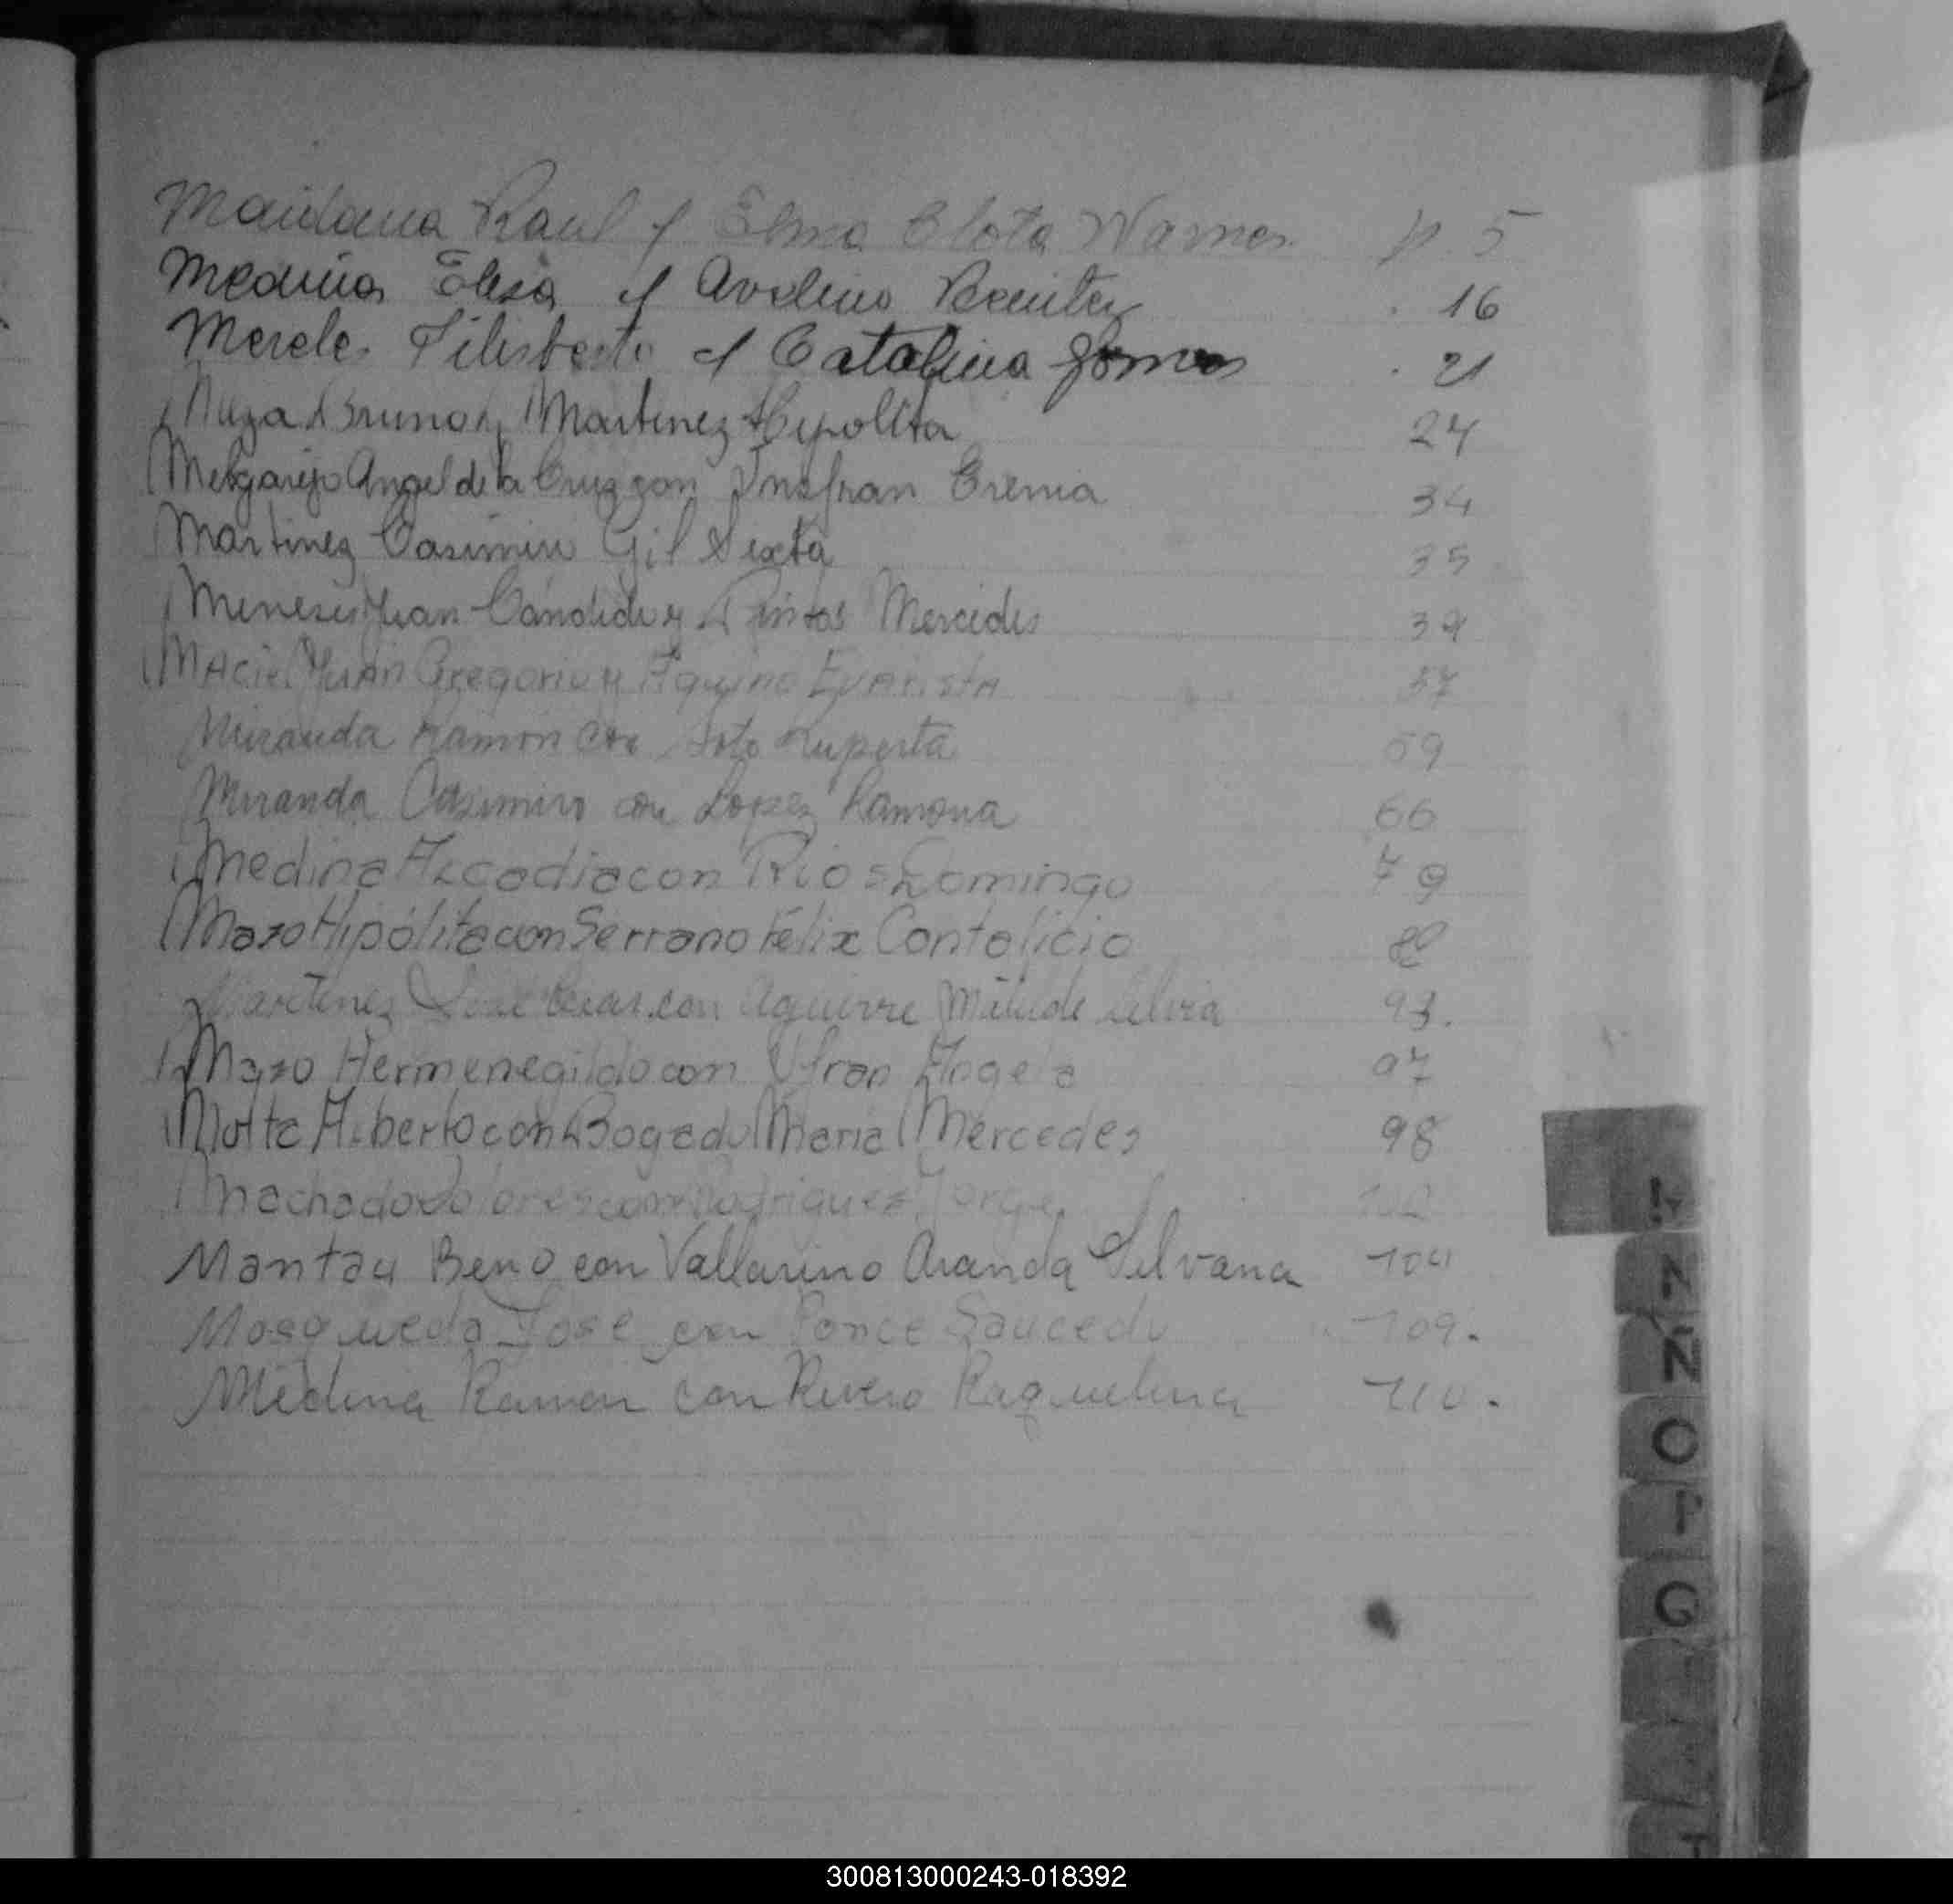 Maidana Raul c/ Elma Clota Warner p. 5
Medina Elisa c/ Avelino Benitez . 16
Mereles Filisberto c/ Catalina Gomes . 21
Muza Bruno y Martinez Hipolita 24
Melgarejo Angel de la Cruz con Insfran Erenia 34
Martinez Casimiro Gil Sixta 35
Meneses Juan Candido y Pintos Mercedes 39
Maciel Juan Gregorio y Aquino Evarista 57
Miranda Ramon con Soto Ruperta 59
Miranda Casimiro con Lopez Ramona 66
Medina Arcadia con Rios Domingo 79
Mazo Hipólita con Serrano Félix Contalicio
Martinez José con Aguirre Matilde Silvia 93.
Mazo Hermenegildo con Ufran Angela 97
Motta Alberto con Bogado Maria Mercedes 98
Machado Dolores con Rodriguez Jorge 102
Mantau Beno con Vallarino Aranda Silvana 104
Mosqueda José con Ponce Saucedo 109.
Medina Ramon con Rivero Raquelina 110.
M
N
Ñ
O
P
Q
300813000243-018392